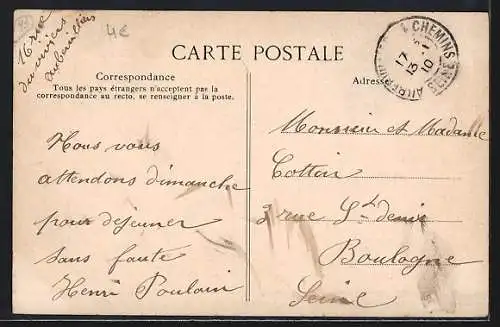 16 rue
du vivier
aubervilliers
4€
CARTE POSTALE
Correspondance
Tous les pays étrangers n'acceptent pas la
correspondance au recto, se renseigner à la poste.
Nous vous
attendons dimanche
pour dejeuner
sans faute
Henri Poulain
4 CHEMINS
17
13 -1
10
Adresse
Monsieur et Madame
Cottin
3 rue St denis
Boulogne
Seine